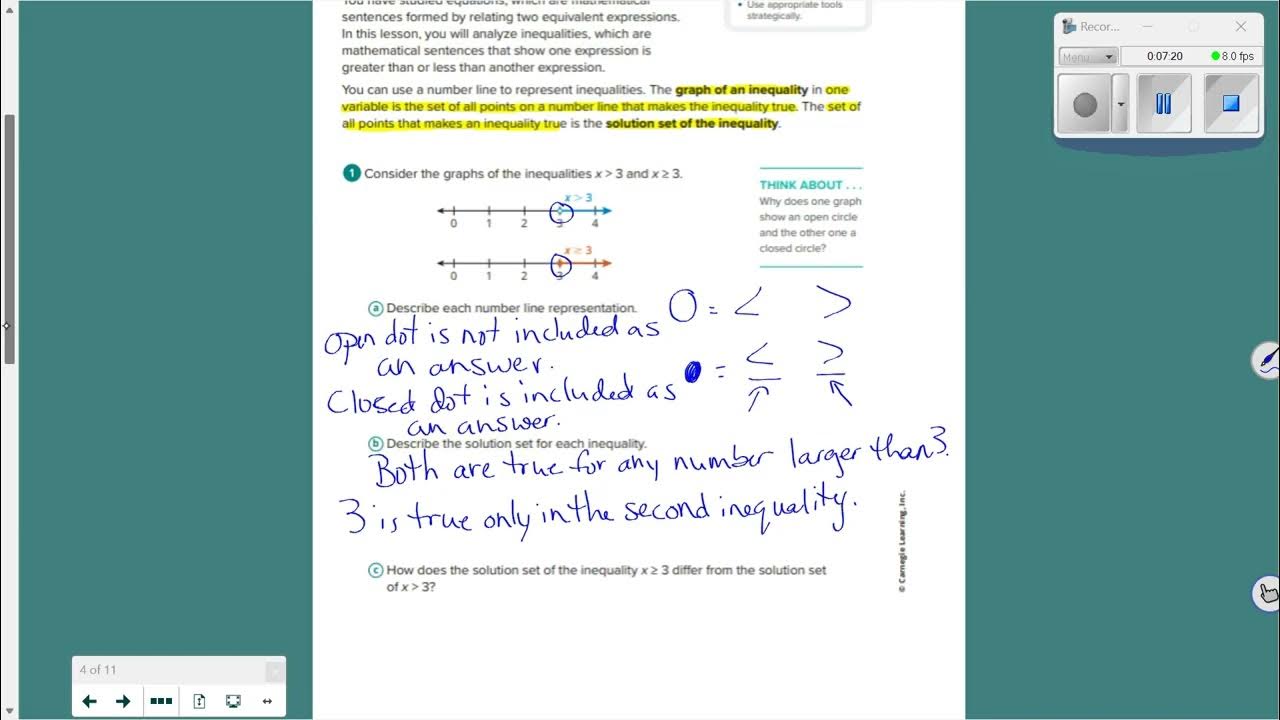 You have studied equations, which are mathematical
sentences formed by relating two equivalent expressions.
In this lesson, you will analyze inequalities, which are
mathematical sentences that show one expression is
greater than or less than another expression.
• Use appropriate tools
strategically.
You can use a number line to represent inequalities. The graph of an inequality in one
variable is the set of all points on a number line that makes the inequality true. The set of
all points that makes an inequality true is the solution set of the inequality.
1 Consider the graphs of the inequalities x > 3 and x ≥ 3.
x > 3
0 1 2 3 4
x ≥ 3
0 1 2 3 4
THINK ABOUT . . .
Why does one graph
show an open circle
and the other one a
closed circle?
a Describe each number line representation.
O = < >
Open dot is not included as
an answer.
● = ≤ ≥
Closed dot is included as
an answer.
b Describe the solution set for each inequality.
Both are true for any number larger than 3.
3 is true only in the second inequality.
c How does the solution set of the inequality x ≥ 3 differ from the solution set
of x > 3?
© Carnegie Learning, Inc.
Recor...
Menu
0:07:20
8.0 fps
4 of 11